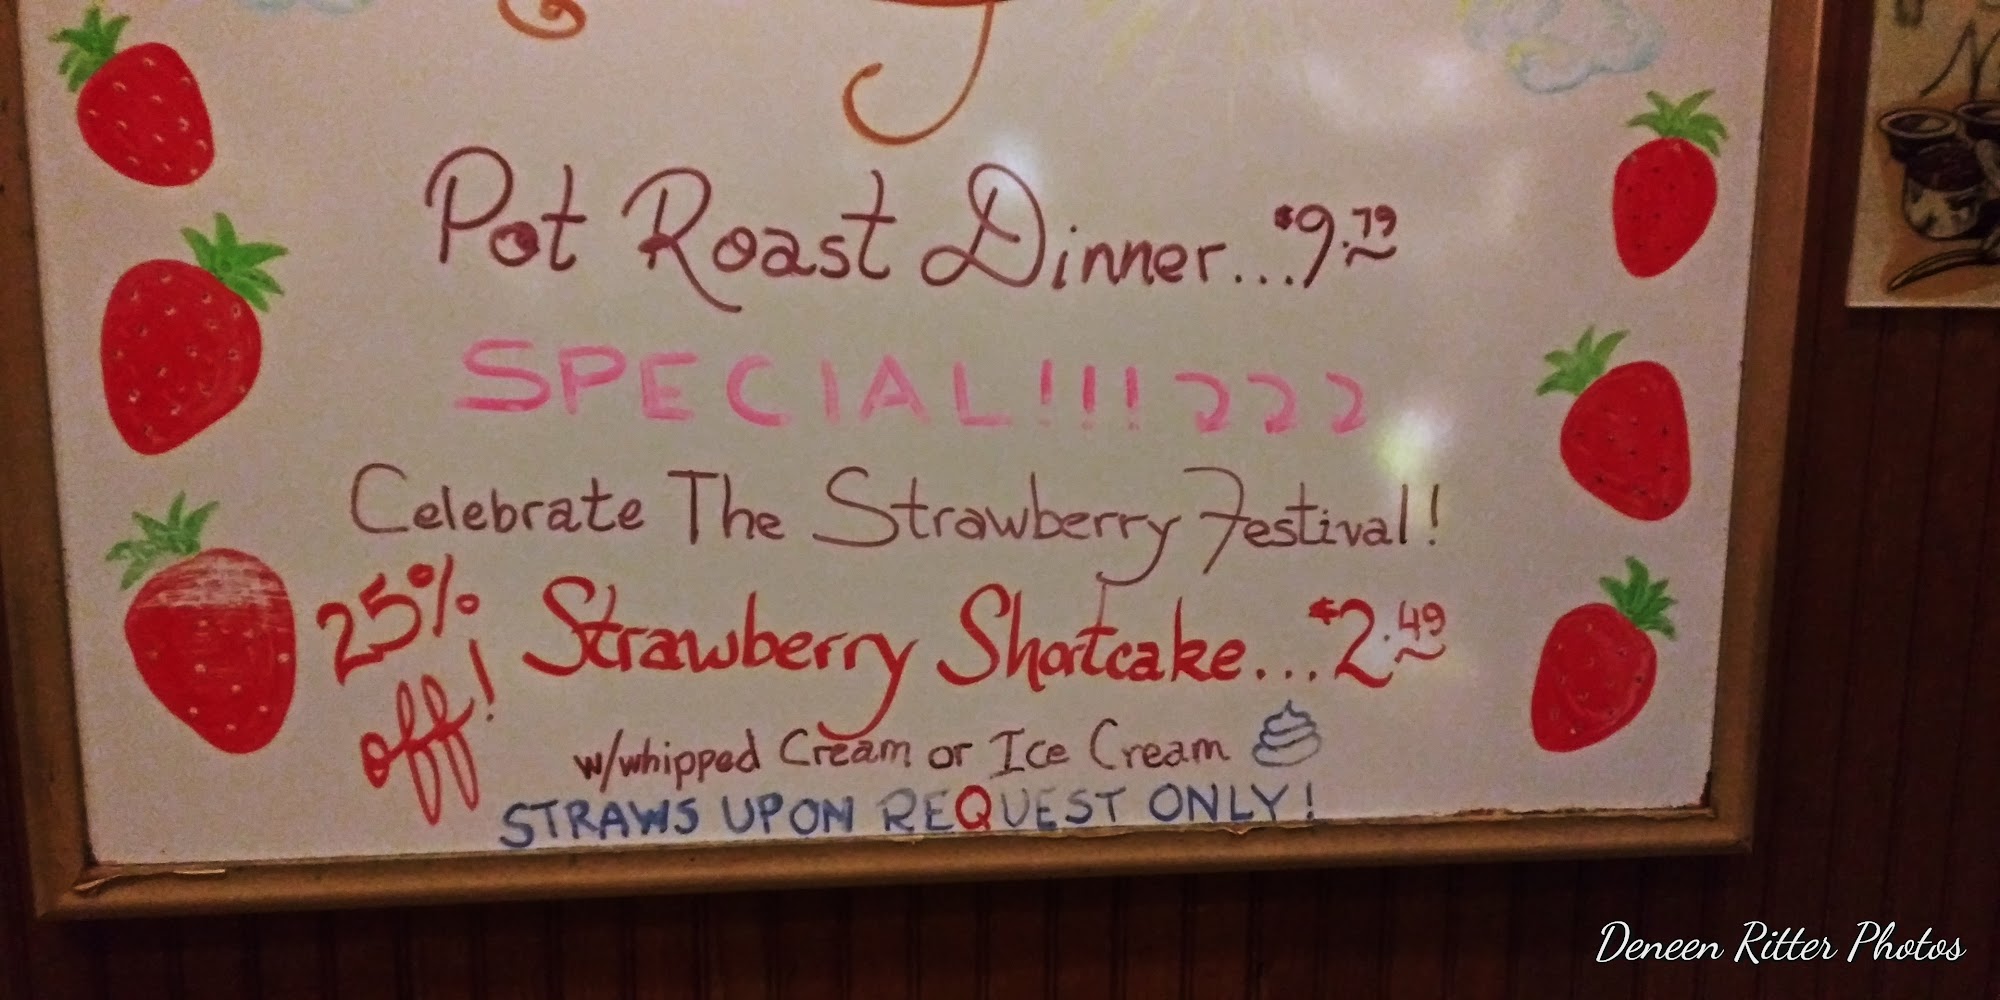 Pot Roast Dinner...$9.79
SPECIAL!!!
Celebrate The Strawberry Festival!
25% off! Strawberry Shortcake...$2.49
w/whipped Cream or Ice Cream
STRAWS UPON REQUEST ONLY!
Deneen Ritter Photos